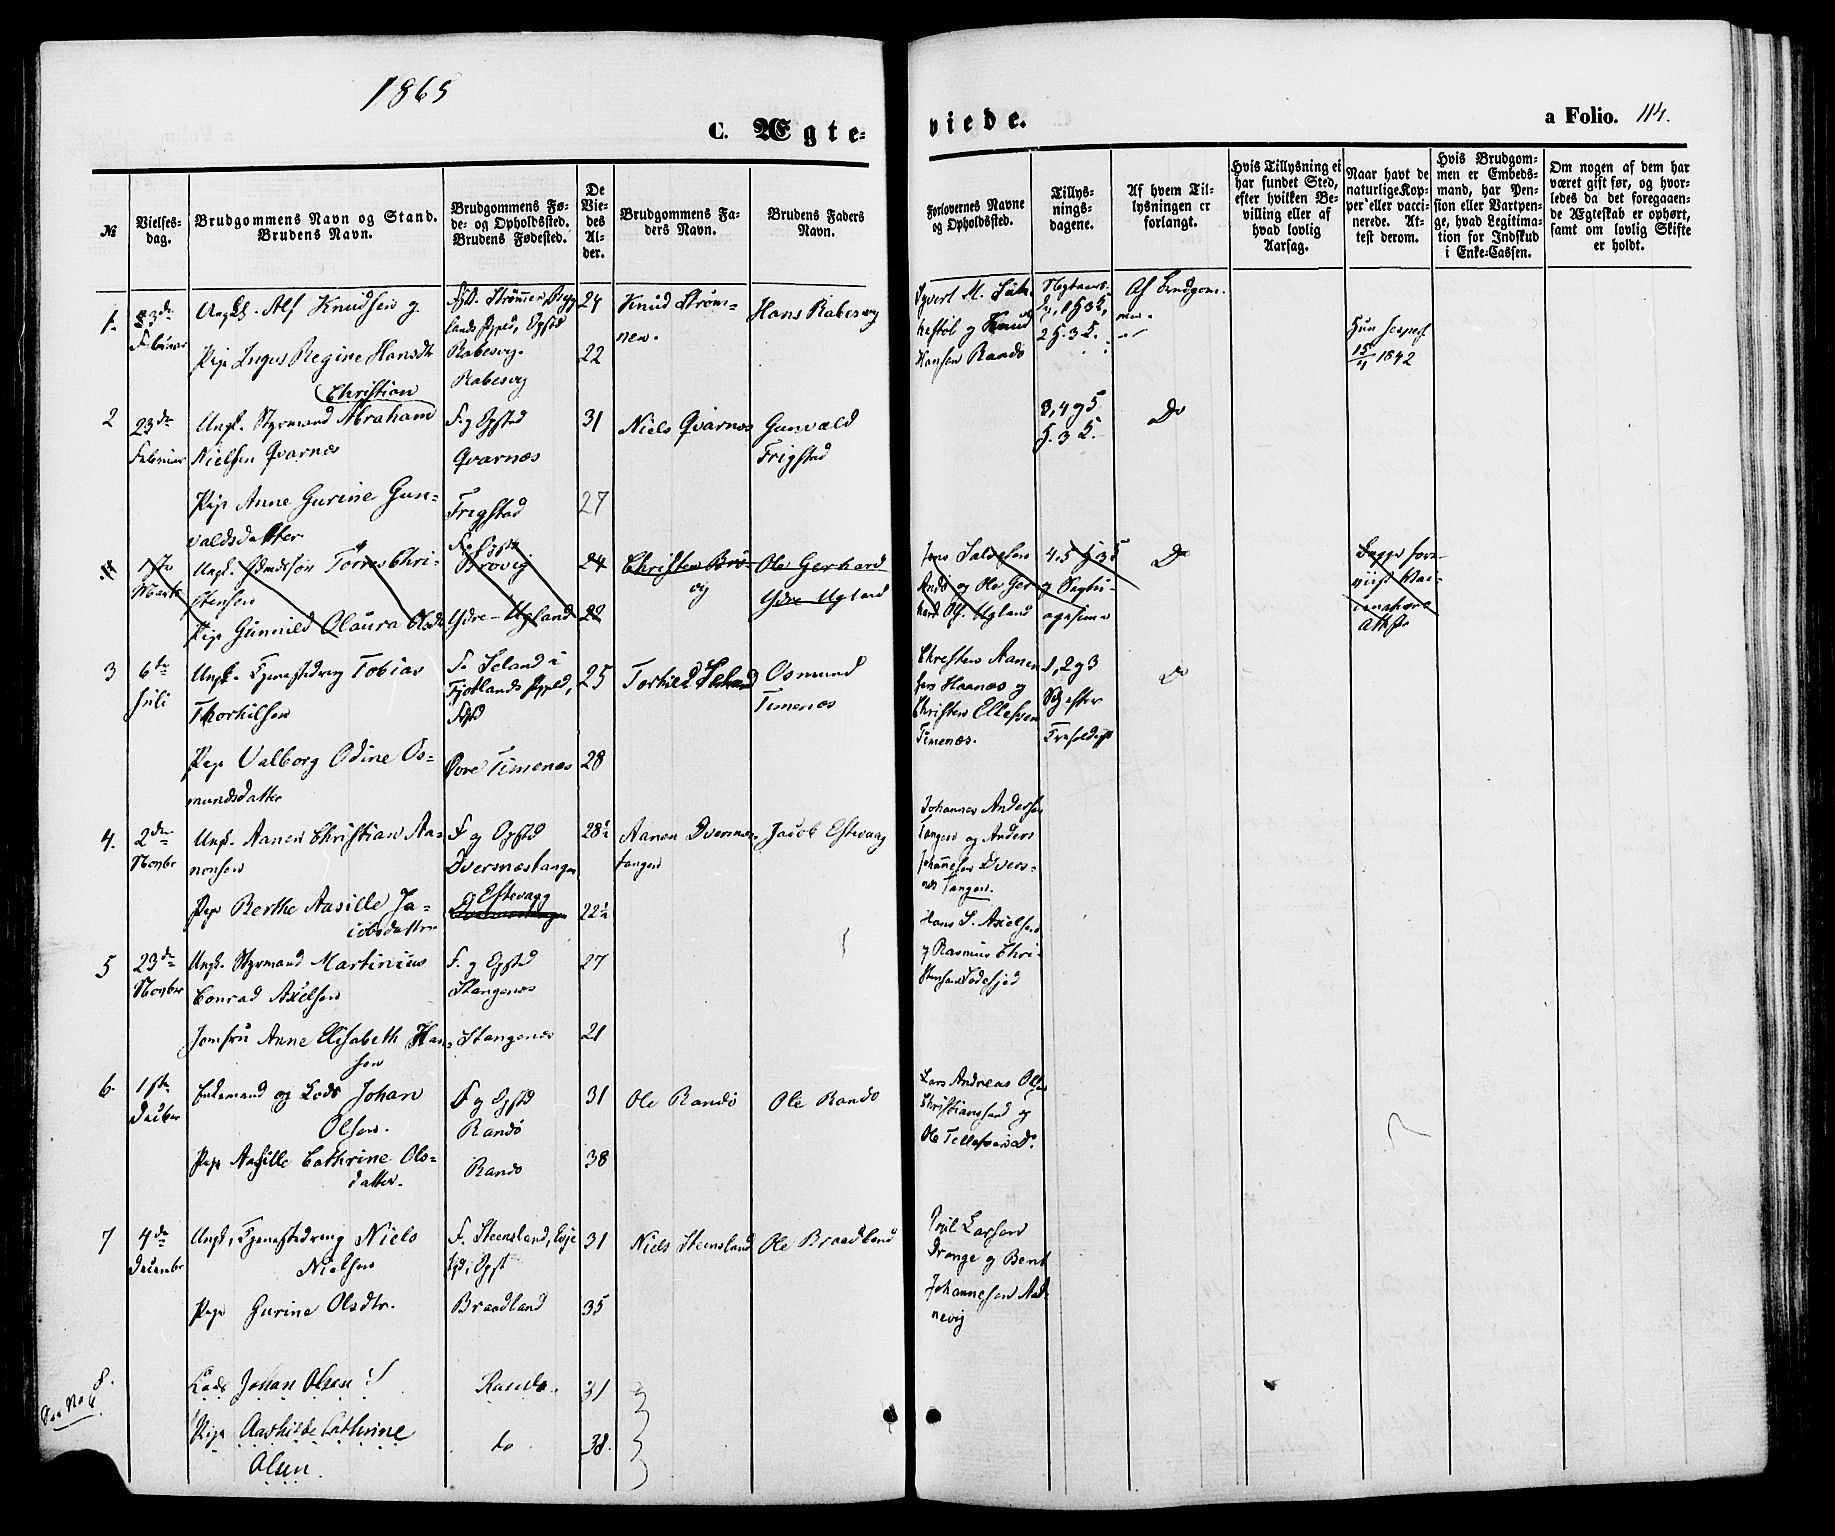 1865
C. Ægte-
viede.
a Folio. 114.
№
Vielses-
dag.
Brudgommens Navn og Stand.
Brudens Navn.
Brudgommens Fø-
de- og Opholdssted.
Brudens Fødested.
De
Vie-
des
Al-
der.
Brudgommens Fa-
ders Navn.
Brudens Faders
Navn.
Forlovernes Navne
og Opholdssted.
Tillys-
nings-
dagene.
Af hvem Til-
lysningen er
forlangt.
Hvis Tillysning ei
har fundet Sted,
efter hvilken Be-
villing eller af
hvad lovlig
Aarsag.
Naar havt de
naturlige Kop-
per eller vacci-
nerede. At-
test derom.
Hvis Brudgom-
men er Embeds-
mand, har Pen-
sion eller Vartpen-
ge, hvad Legitima-
tion for Indskud
i Enke-Cassen.
Om nogen af dem har
været gift før, og hvor-
ledes da det foregaaen-
de Ægteskab er ophørt,
samt om lovlig Skifte
er holdt.
1.
23de
Februar
Ungk. Alf Knudsen og
Pige Inger Regine Hansdr
Rabesvig.
Rabesvig
24
22
Knud Strøm-
nen.
Hans Rabesvig
og Knud
Hansen Randø
Af Brudgom-
men.
15/4 1842
2
23de
Februar
Christian
Ungk. Styrmand Abraham
Nielsen Qvarnes
Pige Anne Gurine Gun-
valdsdatter
F. og Opsted
Qvarnes
Frigstad
31
27
Niels Qvarnes
Gunvald
Frigstad
3, 4 og 5
S. 3 S.
Do
4
1ste
Marts
Ungk. Torres Chri-
stensen
Pige Gunnild Olaura Olsdr
Brovig
Ydre-Ugland
24
22
Christen Bro-
vig
Ole Gerhard
Ydre Ugland
og Ole Ger-
hard Ols. Ugland
Do
3
6te
Juli
Ungk. Tjenestedreng Tobias
Thorkilsen
Pige Valborg Odine Os-
mundsdatter
F. Seland i
Fjotlands
Øvre Timenes
25
28
Torkild Seland
Osmund
Timenes
Christen Aanen-
sen Haanes og
Christen Ellefsen
Timenes.
1, 2 og 3
S. efter
Do
4.
2den
Novbr
Ungk. Aanen Christian Aa-
nonsen
Pige Berthe Aasille Ja-
cobsdatter
F. og Opsted
Dversnestangen
Eftevaag
28½
22½
Aanen Dversnes-
tangen
Jacob Eftevaag
Johannes Andersen
Tangen og Anders
Johannesen Dvers-
nes Tangen.
5
23de
Novber
Ungk. Styrmand Martinius
Conrad Axelsen
Jomfru Anne Elisabeth Han-
sen
F. og Opsted
Stangenes
Stangenes
27
21
Hans S. Axelsen
og Rasmus Chri-
stensen
6.
1ste
Decber
Enkemand og Lods Johan
Olsen.
Pige Aasille Cathrine Ols-
datter.
F. og Opsted
Randø
Randø
31
38
Ole Randø
Ole Randø
Lars Andreas Olsen
Christianssand og
Ole Tellefsen Do.
7
4de
December
Ungk. Tjenestedreng Niels
Nielsen
Pige Gurine Olsdtr.
F. Steensland,
Braadland
31
35
Niels Steensland
Ole Braadland
Poul Larsen
Drange og Bent
Johannesen
8.
See No 6
Lods Johan Olsen
Pige Aashilde Cathrine
Olsen.
Randø.
do
31
38.